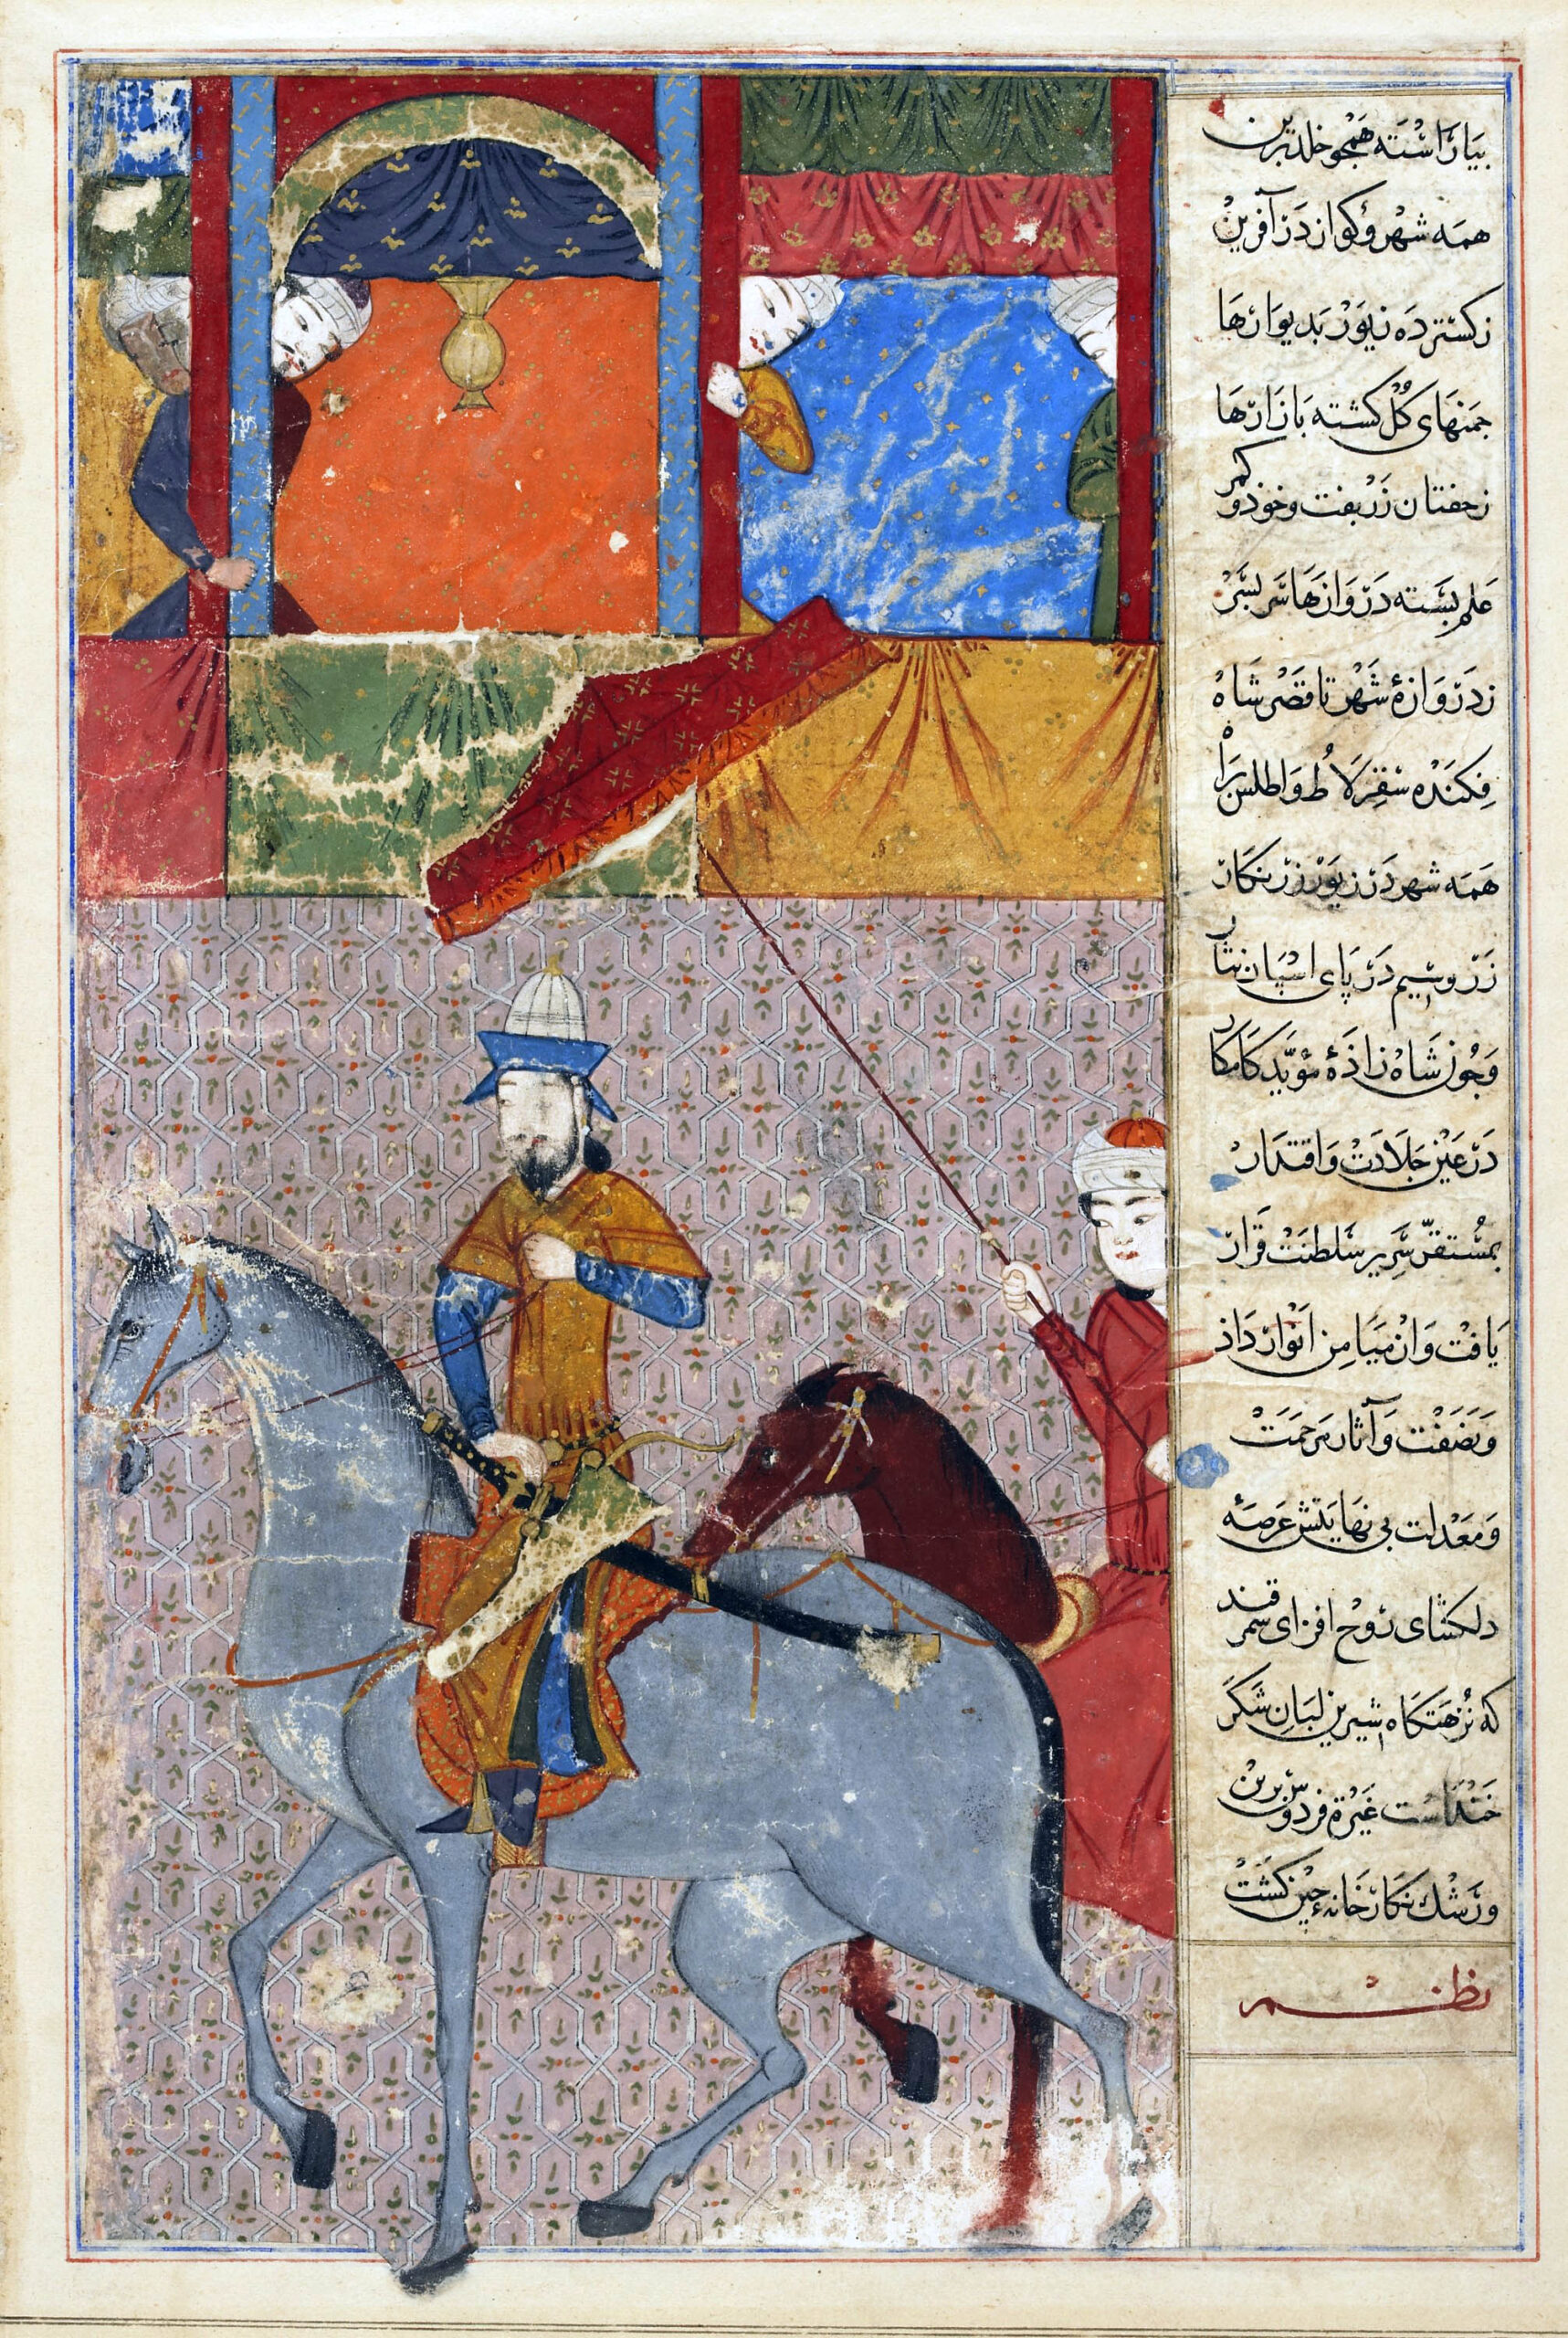 بیاراسته همچو خلد برین
همه شهر و کو از در آفرین
ز کسترده زیور بدیوارها
جمنهای کل کشته بازارها
ز خفتان زربفت و خود و کمر
علم بسته دروازها سربسر
ز دروازهٔ شهر تا قصر شاه
فکنده سقرلاط و اطلس براه
همه شهر در زیور زرنکار
زر و سیم در پای اسپان نثار
و جون شاه زاذهٔ مؤید کامکار
در عین جلادت و اقتدار
بمستقر سریر سلطنت قرار
یافت و از میامن انوار داذ
و نصفت و آثار مرحمت
و معدلت بی نهایتش عرصهٔ
دلکشای روح افزای سمرقند
که نزهتکاه شیرین لبان شکر
خنداست غیرة فردوس برین
و رشک نکارخانهٔ جین کشت
نظم